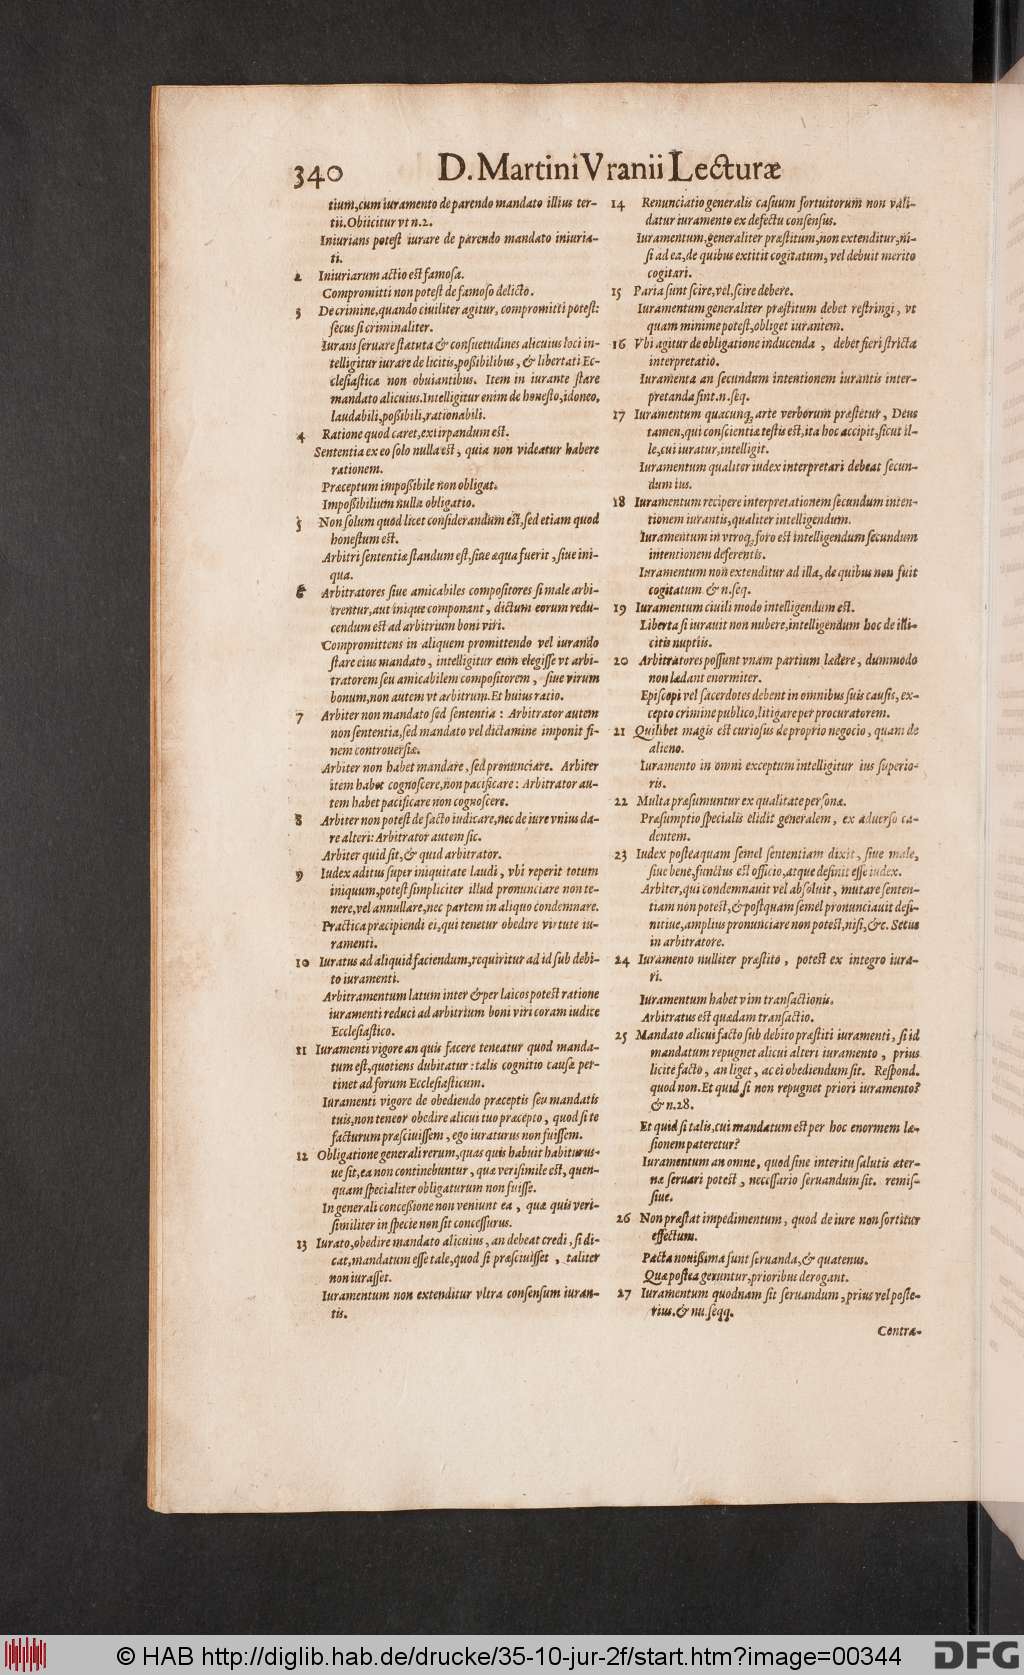 340 D. Martini Vranii Lecturæ
tium, cum iuramento de parendo mandato illius ter-
tii. Obiicitur vt n.2.
Iniurians potest iurare de parendo mandato iniuria-
ti.
2 Iniuriarum actio est famosa.
Compromitti non potest de famoso delicto.
3 De crimine, quando ciuiliter agitur, compromitti potest:
secus si criminaliter.
Iurans seruare statuta & consuetudines alicuius loci in-
telligitur iurare de licitis, poßibilibus, & libertati Ec-
clesiasticæ non obuiantibus. Item in iurante stare
mandato alicuius. Intelligitur enim de honesto, idoneo,
laudabili, poßibili, rationabili.
4 Ratione quod caret, extirpandum est.
Sententia ex eo solo nulla est, quia non videatur habere
rationem.
Præceptum impoßibile non obligat.
Impoßibilium nulla obligatio.
5 Non solum quod licet considerandum est, sed etiam quod
honestum est.
Arbitri sententiæ standum est, siue æqua fuerit, siue ini-
qua.
6 Arbitratores siue amicabiles compositores si male arbi-
trentur, aut inique componant, dictum eorum redu-
cendum est ad arbitrium boni viri.
Compromittens in aliquem promittendo vel iurando
stare eius mandato, intelligitur eum elegisse vt arbi-
tratorem seu amicabilem compositorem, siue virum
bonum, non autem vt arbitrum. Et huius ratio.
7 Arbiter non mandato sed sententia: Arbitrator autem
non sententia, sed mandato vel dictamine imponit fi-
nem controuersiæ.
Arbiter non habet mandare, sed pronunciare. Arbiter
item habet cognoscere, non pacificare: Arbitrator au-
tem habet pacificare non cognoscere.
8 Arbiter non potest de facto iudicare, nec de iure vnius da-
re alteri: Arbitrator autem sic.
Arbiter quid sit, & quid arbitrator.
9 Iudex aditus super iniquitate laudi, vbi reperit totum
iniquum, potest simpliciter illud pronunciare non te-
nere, vel annullare, nec partem in aliquo condemnare.
Practica præcipiendi ei, qui tenetur obedire virtute iu-
ramenti.
10 Iuratus ad aliquid faciendum, requiritur ad id sub debi-
to iuramenti.
Arbitramentum latum inter & per laicos potest ratione
iuramenti reduci ad arbitrium boni viri coram iudice
Ecclesiastico.
11 Iuramenti vigore an quis facere teneatur quod manda-
tum est, quotiens dubitatur: talis cognitio causæ per-
tinet ad forum Ecclesiasticum.
Iuramenti vigore de obediendo præceptis seu mandatis
tuis, non teneor obedire alicui tuo præcepto, quod si te
facturum præsciuissem, ego iuraturus non fuissem.
12 Obligatione generali rerum, quas quis habuit habiturus-
ue sit, ea non continebuntur, quæ verisimile est, quen-
quam specialiter obligaturum non fuisse.
In generali conceßione non veniunt ea, quæ quis veri-
similiter in specie non sit concessurus.
13 Iurato, obedire mandato alicuius, an debeat credi, si di-
cat, mandatum esse tale, quod si præsciuisset, taliter
non iurasset.
Iuramentum non extenditur vltra consensum iuran-
tis.
14 Renunciatio generalis casuum fortuitorum non vali-
datur iuramento ex defectu consensus.
Iuramentum, generaliter præstitum, non extenditur, ni-
si ad ea, de quibus extitit cogitatum, vel debuit merito
cogitari.
15 Paria sunt scire, vel, scire debere.
Iuramentum generaliter præstitum debet restringi, vt
quam minime potest, obliget iurantem.
16 Vbi agitur de obligatione inducenda, debet fieri stricta
interpretatio.
Iuramenta an secundum intentionem iurantis inter-
pretanda sint. n. seq.
17 Iuramentum quacunq; arte verborum præstetur, Deus
tamen, qui conscientiæ testis est, ita hoc accipit, sicut il-
le, cui iuratur, intelligit.
Iuramentum qualiter iudex interpretari debeat secun-
dum ius.
18 Iuramentum recipere interpretationem secundum inten-
tionem iurantis, qualiter intelligendum.
Iuramentum in vtroq; foro est intelligendum secundum
intentionem deferentis.
Iuramentum non extenditur ad illa, de quibus non fuit
cogitatum. & n. seq.
19 Iuramentum ciuili modo intelligendum est.
Liberta si iurauit non nubere, intelligendum hoc de illi-
citis nuptiis.
20 Arbitratores possunt vnam partium lædere, dummodo
non lædant enormiter.
Episcopi vel sacerdotes debent in omnibus suis causis, ex-
cepto crimine publico, litigare per procuratorem.
21 Quilibet magis est curiosus de proprio negocio, quam de
alieno.
Iuramento in omni exceptum intelligitur ius superio-
ris.
22 Multa præsumuntur ex qualitate personæ.
Præsumptio specialis elidit generalem, ex aduerso ca-
dentem.
23 Iudex posteaquam semel sententiam dixit, siue male,
siue bene, functus est officio, atque definit esse iudex.
Arbiter, qui condemnauit vel absoluit, mutare senten-
tiam non potest, & postquam semel pronunciauit defi-
nitiue, amplius pronunciare non potest, nisi, &c. Secus
in arbitratore.
24 Iuramento nulliter præstito, potest ex integro iura-
ri.
Iuramentum habet vim transactionis.
Arbitratus est quædam transactio.
25 Mandato alicui facto sub debito præstiti iuramenti, si id
mandatum repugnet alicui alteri iuramento, prius
licite facto, an liget, ac ei obediendum sit. Respond.
quod non. Et quid si non repugnet priori iuramento?
& n.28.
Et quid si talis, cui mandatum est per hoc enormem læ-
sionem pateretur?
Iuramentum an omne, quod sine interitu salutis æter-
næ seruari potest, necessario seruandum sit. remis-
siue.
26 Non præstat impedimentum, quod de iure non sortitur
effectum.
Pacta nouißima sunt seruanda, & quatenus.
Quæ postea geruntur, prioribus derogant.
27 Iuramentum quodnam sit seruandum, prius vel poste-
rius. & nu. seqq.
Contra-
© HAB http://diglib.hab.de/drucke/35-10-jur-2f/start.htm?image=00344
DFG